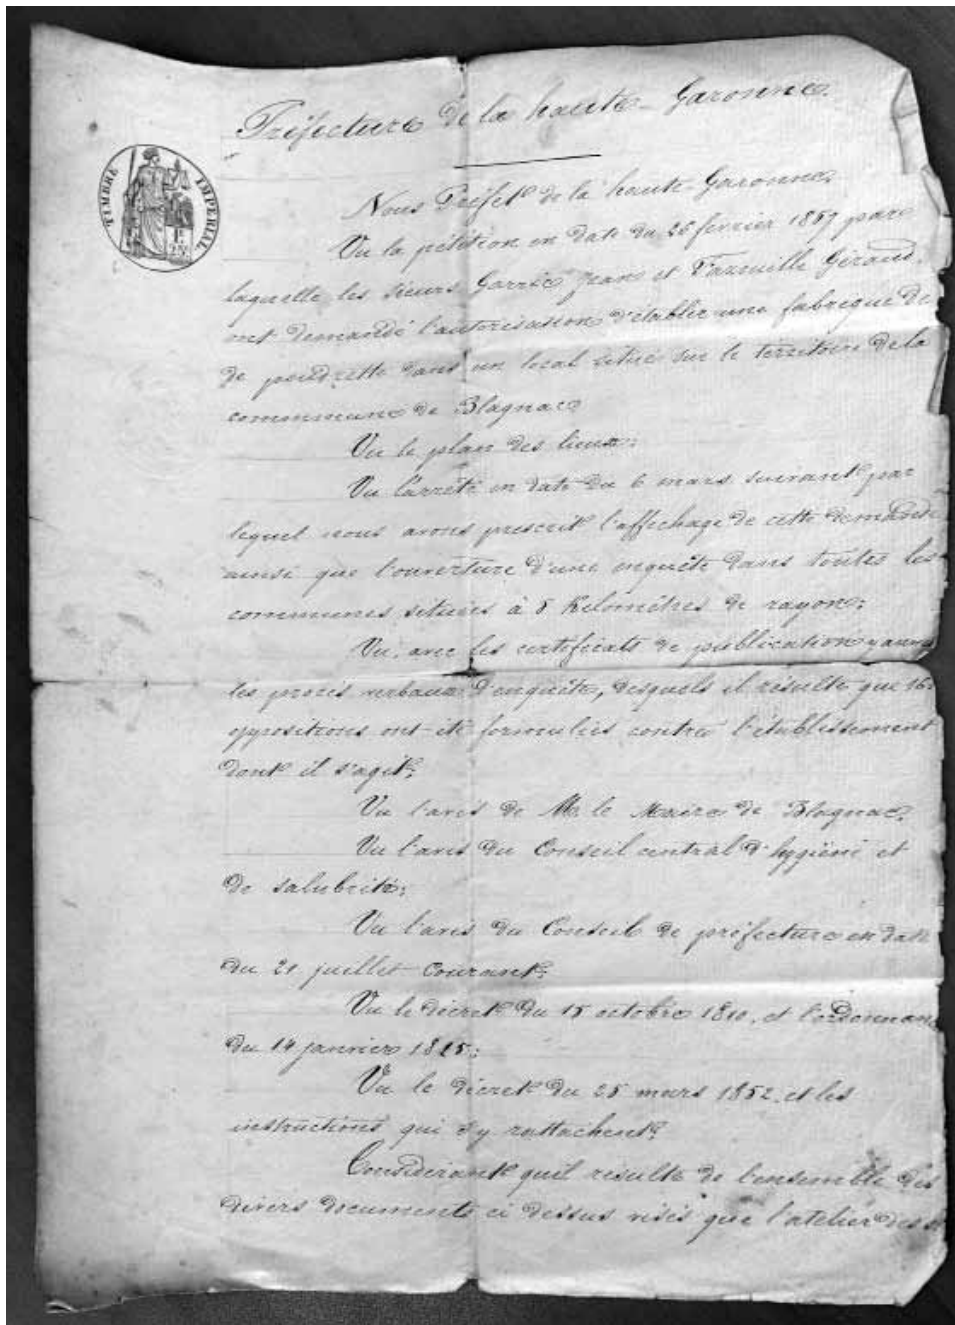 Préfecture de la haute-Garonne
TIMBRE IMPERIAL
Nous Préfet de la haute-Garonne,
Vu la pétition en date du 26 février 1857 par
laquelle les sieurs Garric Jean et Géraud
ont demandé l'autorisation d'établir une fabrique de
de poudrette dans un local situé sur le territoire de la
commune de Blagnac
Vu le plan des lieux;
Vu l'arrêté en date du 6 mars suivant par
lequel nous avons prescrit l'affichage de cette demande
ainsi que l'ouverture d'une enquête dans toutes les
communes situées à 5 Kilomètres de rayon;
Vu, avec les certificats de publication
les procès verbaux d'enquête, desquels il résulte que 16
oppositions ont été formulées contre l'établissement
dont il s'agit;
Vu l'avis de M. le Maire de Blagnac,
Vu l'avis du Conseil central d'hygiène et
de salubrité;
Vu l'avis du Conseil de préfecture en date
du 21 juillet courant;
Vu le décret du 15 octobre 1810, et l'ordonnan
du 14 janvier 1815;
Vu le décret du 25 mars 1852, et les
instructions qui s'y rattachent;
Considérant qu'il résulte de l'ensemble des
divers documents ci dessus visés que l'atelier des